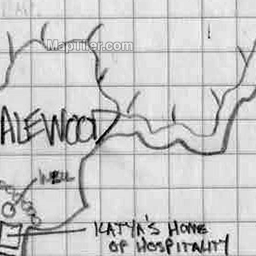 MapTiler.com
ALEWOOD
WELL
KATYA'S HOME
OF HOSPITALITY